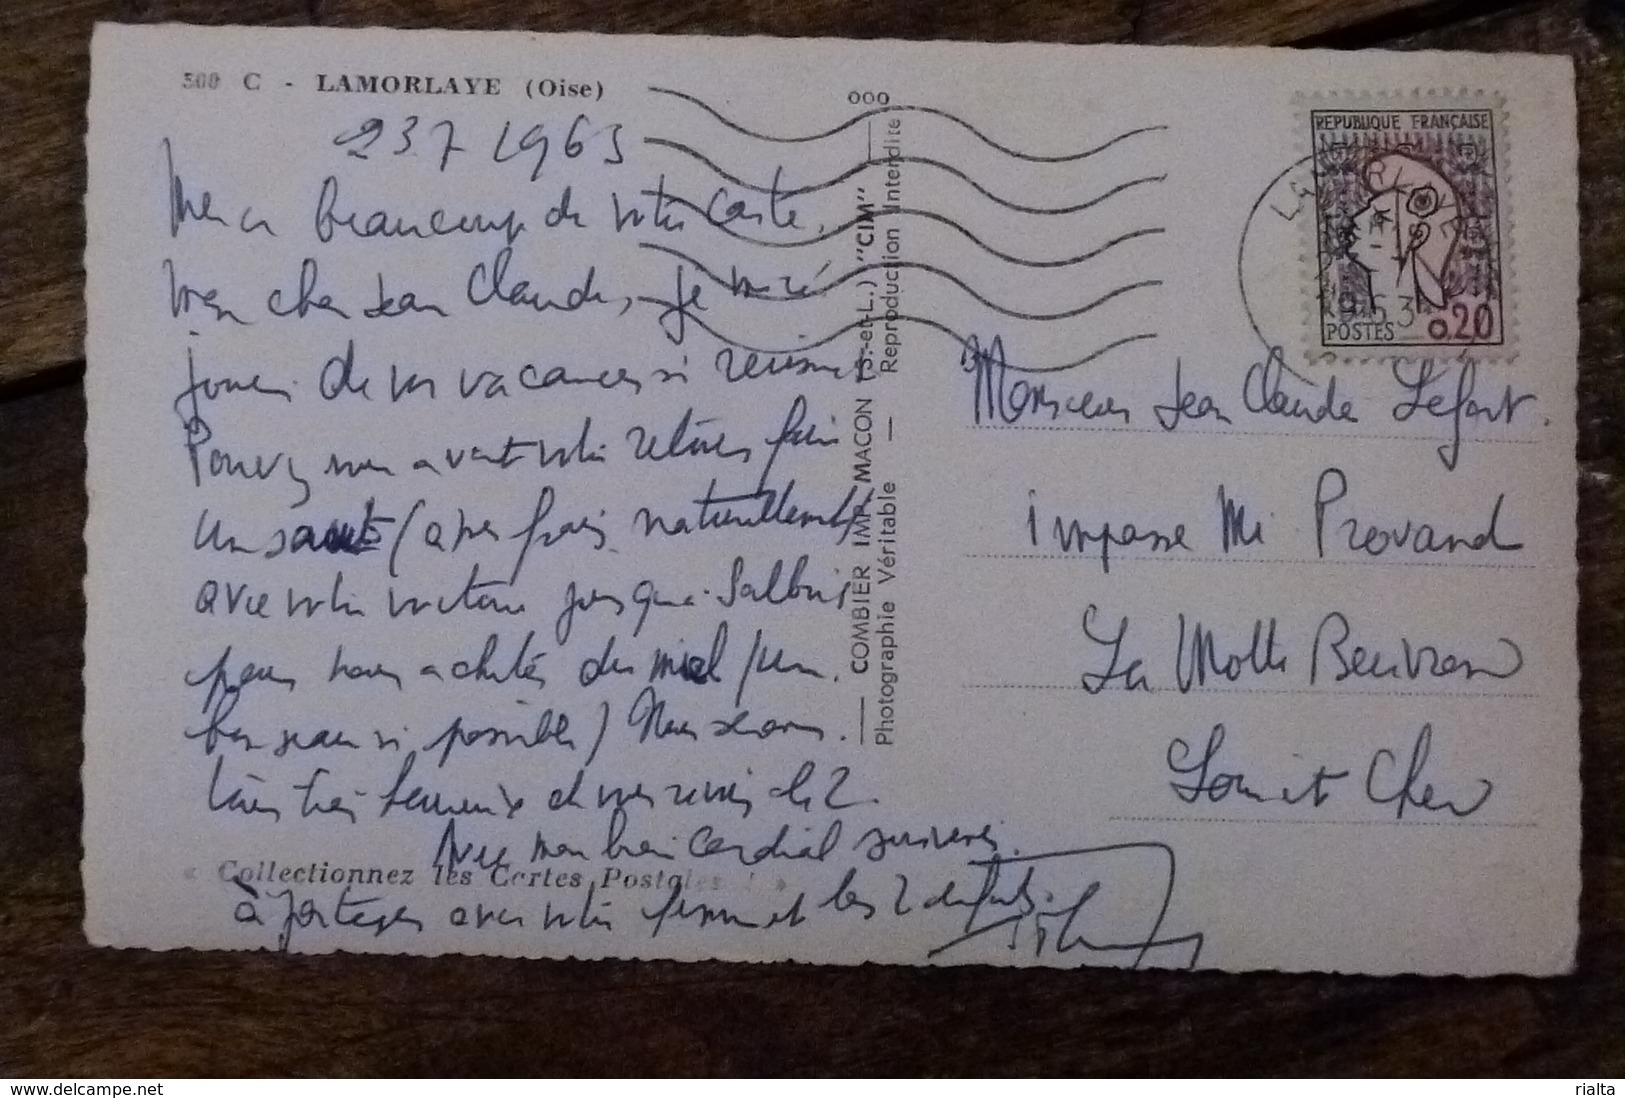 500 C - LAMORLAYE (Oise)
23 7 1963
Merci beaucoup de votre carte,
mon cher Jean Claude, je me ré
jouis de vos vacances si
Pouvez vous avant votre faire
un saut (à mes frais naturellement)
avec votre voiture jusqu'à Salbris
pour nous acheter du miel (un
beau seau si possible) Nous serons
tous très heureux de vous revoir
Avec mon bien cordial souvenir
à partager avec votre femme et les 2 enfants.
« Collectionnez les Cartes Postales ! »
ooo
COMBIER IMP. MACON (S.-et-L.) "CIM"
Photographie Véritable — Reproduction Interdite
REPUBLIQUE FRANÇAISE
POSTES 0,20
1963
Monsieur Jean Claude Lefort.
Impasse Mi Provand
La Motte Beuvron
Loir et Cher
www.delcampe.net
rialta